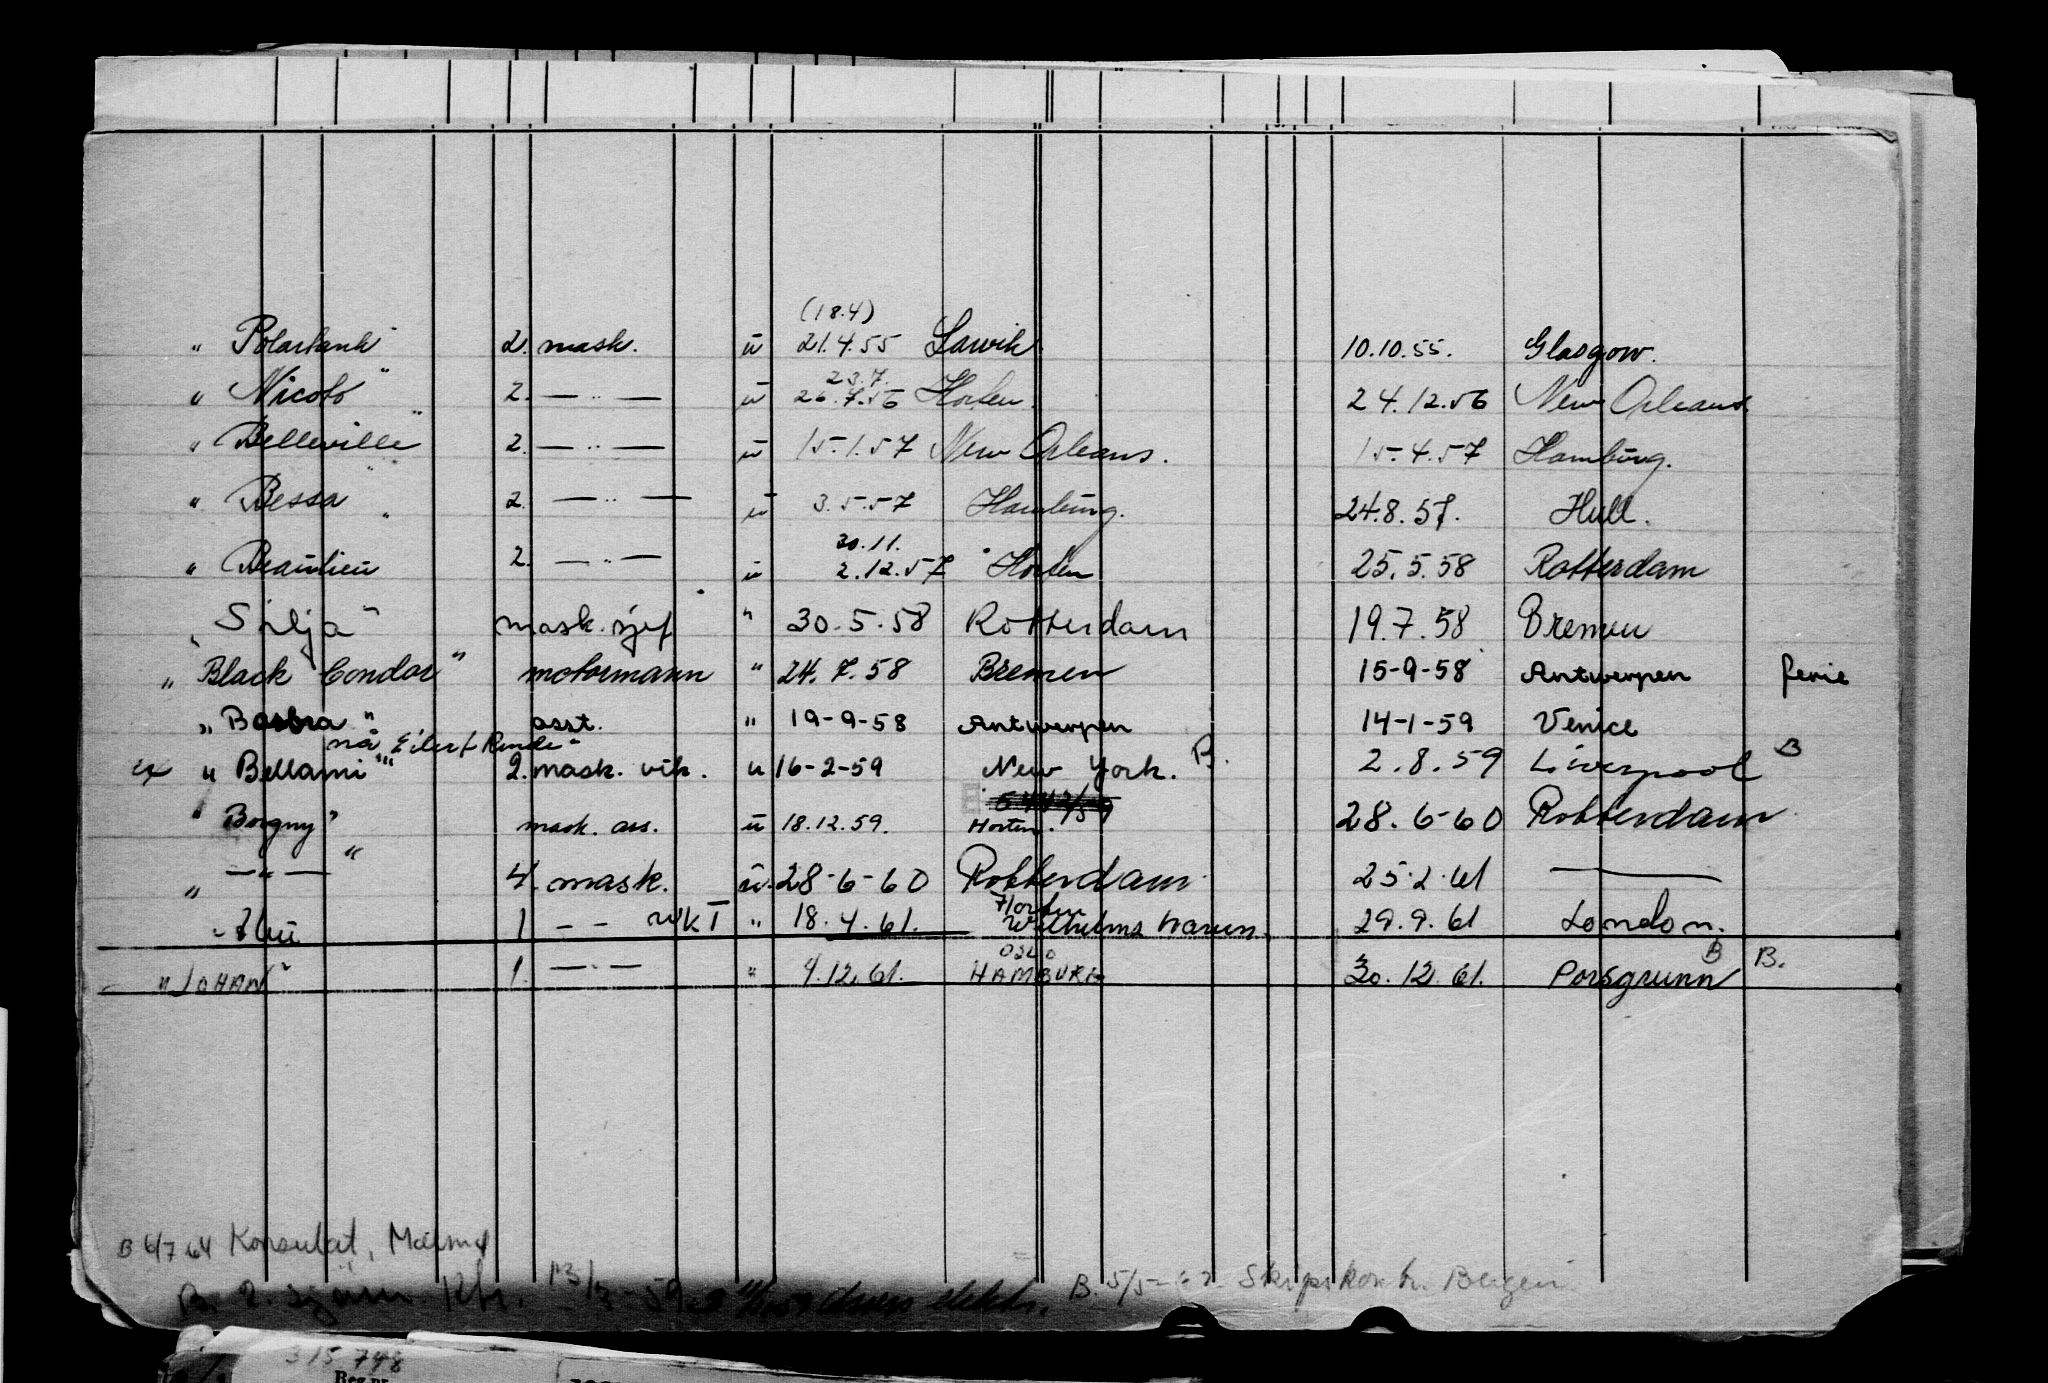 (18.4)
" Polartank" 2. mask. ū 21.4.55 Larvik. 10.10.55. Glasgow.
23.7.
" Nicoto" 2. — " — ū 26.7.56 Horten. 24.12.56 New Orleans.
" Belleville" 2. — " — ū 15.1.57 New Orleans. 15.4.57 Hamburg.
" Bessa" 2. — " — ū 3.5.57 Hamburg. 24.8.57. Hull.
30.11.
" Beaulieu" 2. — " — ū 2.12.57 Horten 25.5.58 Rotterdam
" Silja" mask. sjef " 30.5.58 Rotterdam 19.7.58 Bremen
" Black Condor" motormann " 24.7.58 Bremen 15-9-58 Antwerpen ferie
" Basbra" asst. " 19-9-58 Antwerpen 14-1-59 Venice
nå "Eilert Rinde"
ex " Bellami" 2. mask. vik. u 16-2-59 New York. B. 2.8.59 Liverpool B
" Borgny" mask. ass. ū 18.12.59. Horten. 28.6-60 Rotterdam
" — " — " 4. mask. ū. 28-6-60 Rotterdam 25.2.61 ———
Horten
1 — - vik I " 18.4.61. Wilhelmshaven. 29.9.61 London.
OSLO
" JOHAN" 1. — " — " 4.12.61. HAMBURG 30.12.61. Porsgrunn B B.
B 6/7 64 Konsulat, Malmø
B. 2. sjøm. Kbr. 13/3-59. drivers elektr. B. 5/5-62 Skipskontr. Bergen
315 748
Reg.nr.